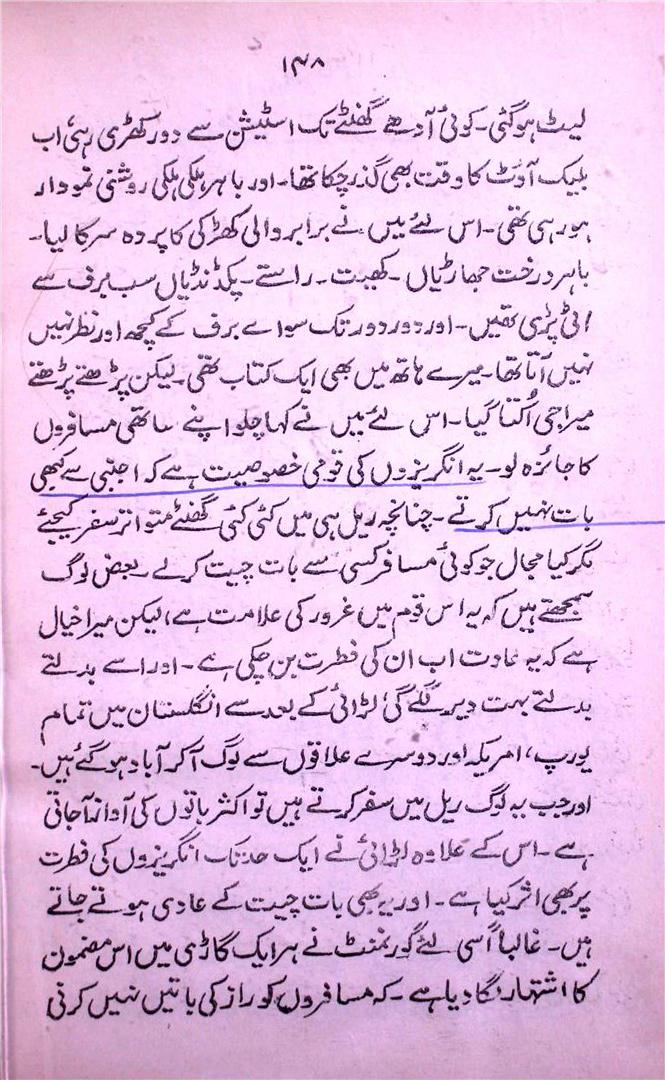 ۱۴۸
لیٹ ہوگئی۔ کوئی آدھے گھنٹے تک اسٹیشن سے دور کھڑی رہی، اب
بلیک آؤٹ کا وقت بھی گذر چکا تھا۔ اور باہر ہلکی ہلکی روشنی نمودار
ہورہی تھی۔ اس لئے میں نے برابر والی کھڑکی کا پردہ سرکا لیا۔
باہر درخت جھاڑیاں۔ کھیت۔ راستے۔ پگڈنڈیاں سب برف سے
اٹی پڑی تھیں۔ اور دور دور تک سوائے برف کے کچھ اور نظر نہیں
نہیں آتا تھا۔ میرے ہاتھ میں بھی ایک کتاب تھی۔ لیکن پڑھتے پڑھتے
میرا جی اُکتا گیا۔ اس لئے میں نے کہا چلو اپنے ساتھی مسافروں
کا جائزہ لو۔ یہ انگریزوں کی قومی خصوصیت ہے کہ اجنبی سے کبھی
بات نہیں کرتے۔ چنانچہ ریل ہی میں کئی کئی گھنٹے متواتر سفر کیجئے
مگر کیا مجال جو کوئی مسافر کسی سے بات چیت کرلے۔ بعض لوگ
سمجھتے ہیں کہ یہ اس قوم میں غرور کی علامت ہے، لیکن میرا خیال
ہے کہ یہ عادت اب ان کی فطرت بن چکی ہے۔ اور اسے بدلتے
بدلتے بہت دیر لگے گی، لڑائی کے بعد سے انگلستان میں تمام
یورپ، امریکہ اور دوسرے علاقوں سے لوگ آکر آباد ہوگئے ہیں۔
اور جب یہ لوگ ریل میں سفر کرتے ہیں تو اکثر باتوں کی آواز آجاتی
ہے۔ اس کے علاوہ لڑائی نے ایک حد تک انگریزوں کی فطرت
پر بھی اثر کیا ہے۔ اور یہ بھی بات چیت کے عادی ہوتے جاتے
ہیں۔ غالباً اسی لئے گورنمنٹ نے ہر ایک گاڑی میں اس مضمون
کا اشتہار لگا دیا ہے۔ کہ مسافروں کو راز کی باتیں نہیں کرنی